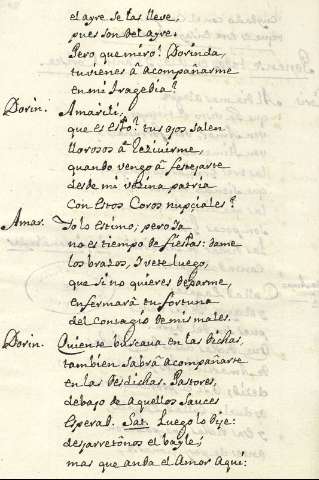 el ayre se las lleve,
pues son del ayre.
Pero que miro? Dorinda,
tu vienes â acompañarme
en mi tragedia?
Dorin. Amarili,
que es esto? tus ojos salen
llorosos â rezivirme,
quando vengo â festejarte
desde mi vezina patria
con estos Coros nupçiales?
Amar. Yo lo estimo; pero ya
no es tiempo de fiestas: dame
los brazos, i vete luego,
que si no quieres dexarme,
enfermarâ tu fortuna
del contagio de mis males.
Dorin. Quien te buscava en las dichas,
tambien sabrâ acompañarte
en las desdichas. Pastores,
debajo de aquellos sauces
esperad. Sat. Luego lo dije:
desjarretônos el bayle;
mas que anda el Amor aqui: